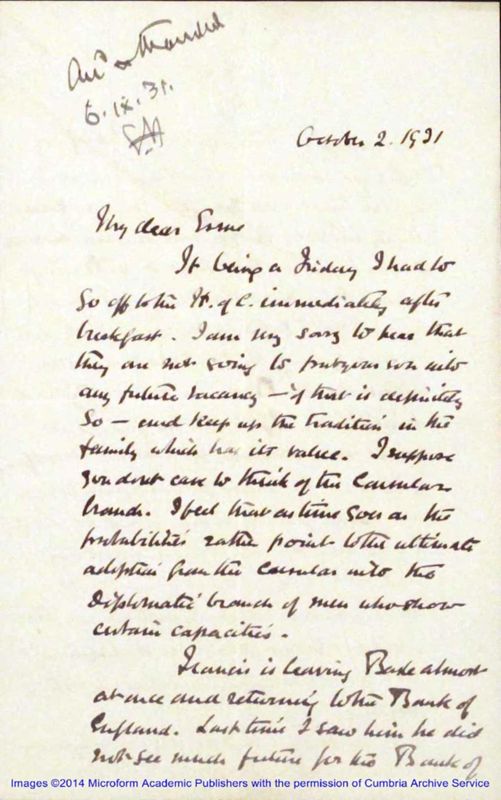 Ansd & thanked
6.ix.31.
October 2. 1931
My dear Esme
It being a Friday I had to
go off to the H. of C. immediately after
breakfast. I am very sorry to hear that
they are not going to put your son into
any future vacancy - if that is definitely
so - and keep up the tradition in the
family which has its value. I suppose
you dont care to think of the Consular
branch. I feel that as time goes on the
probabilities rather point to the ultimate
adoption from the Consular into the
Diplomatic branch of men who show
certain capacities.
Francis is leaving Basle almost
at once and returning to the Bank of
England. Last time I saw him he did
not see much future for the Bank of
Images ©2014 Microform Academic Publishers with the permission of Cumbria Archive Service